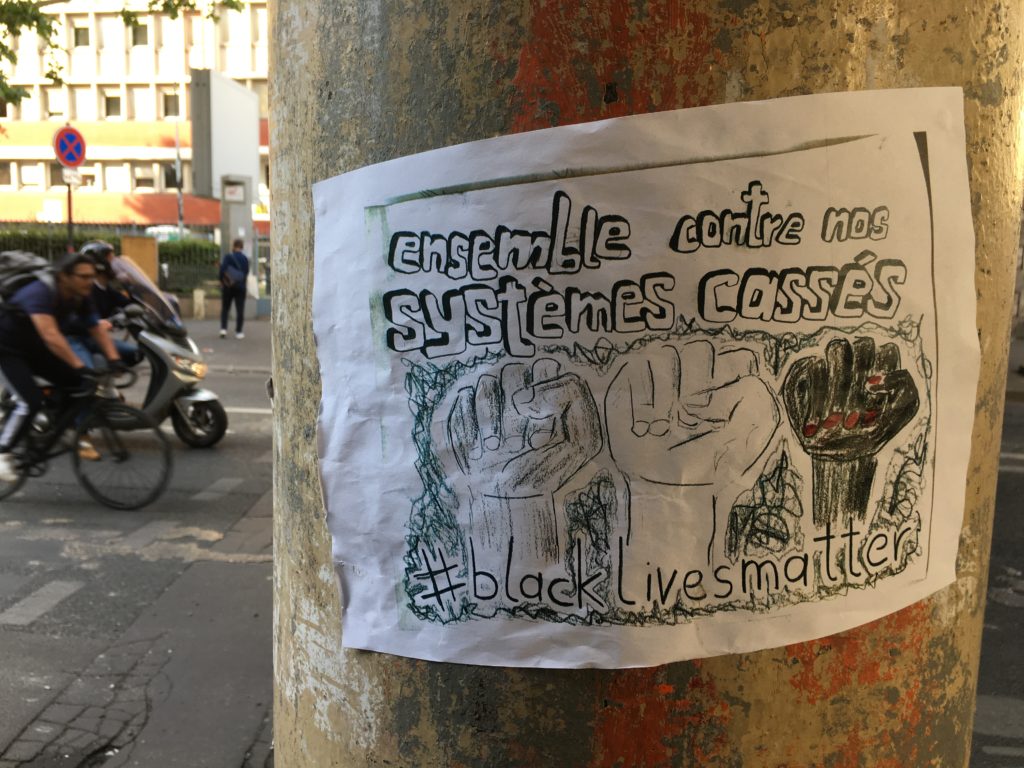 ensemble contre nos
systèmes cassés
#blacklivesmatter